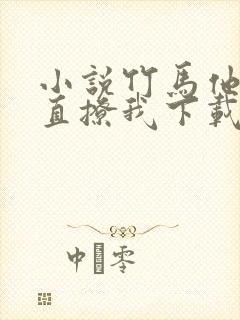 小說竹馬他
直撩我下載
中 零